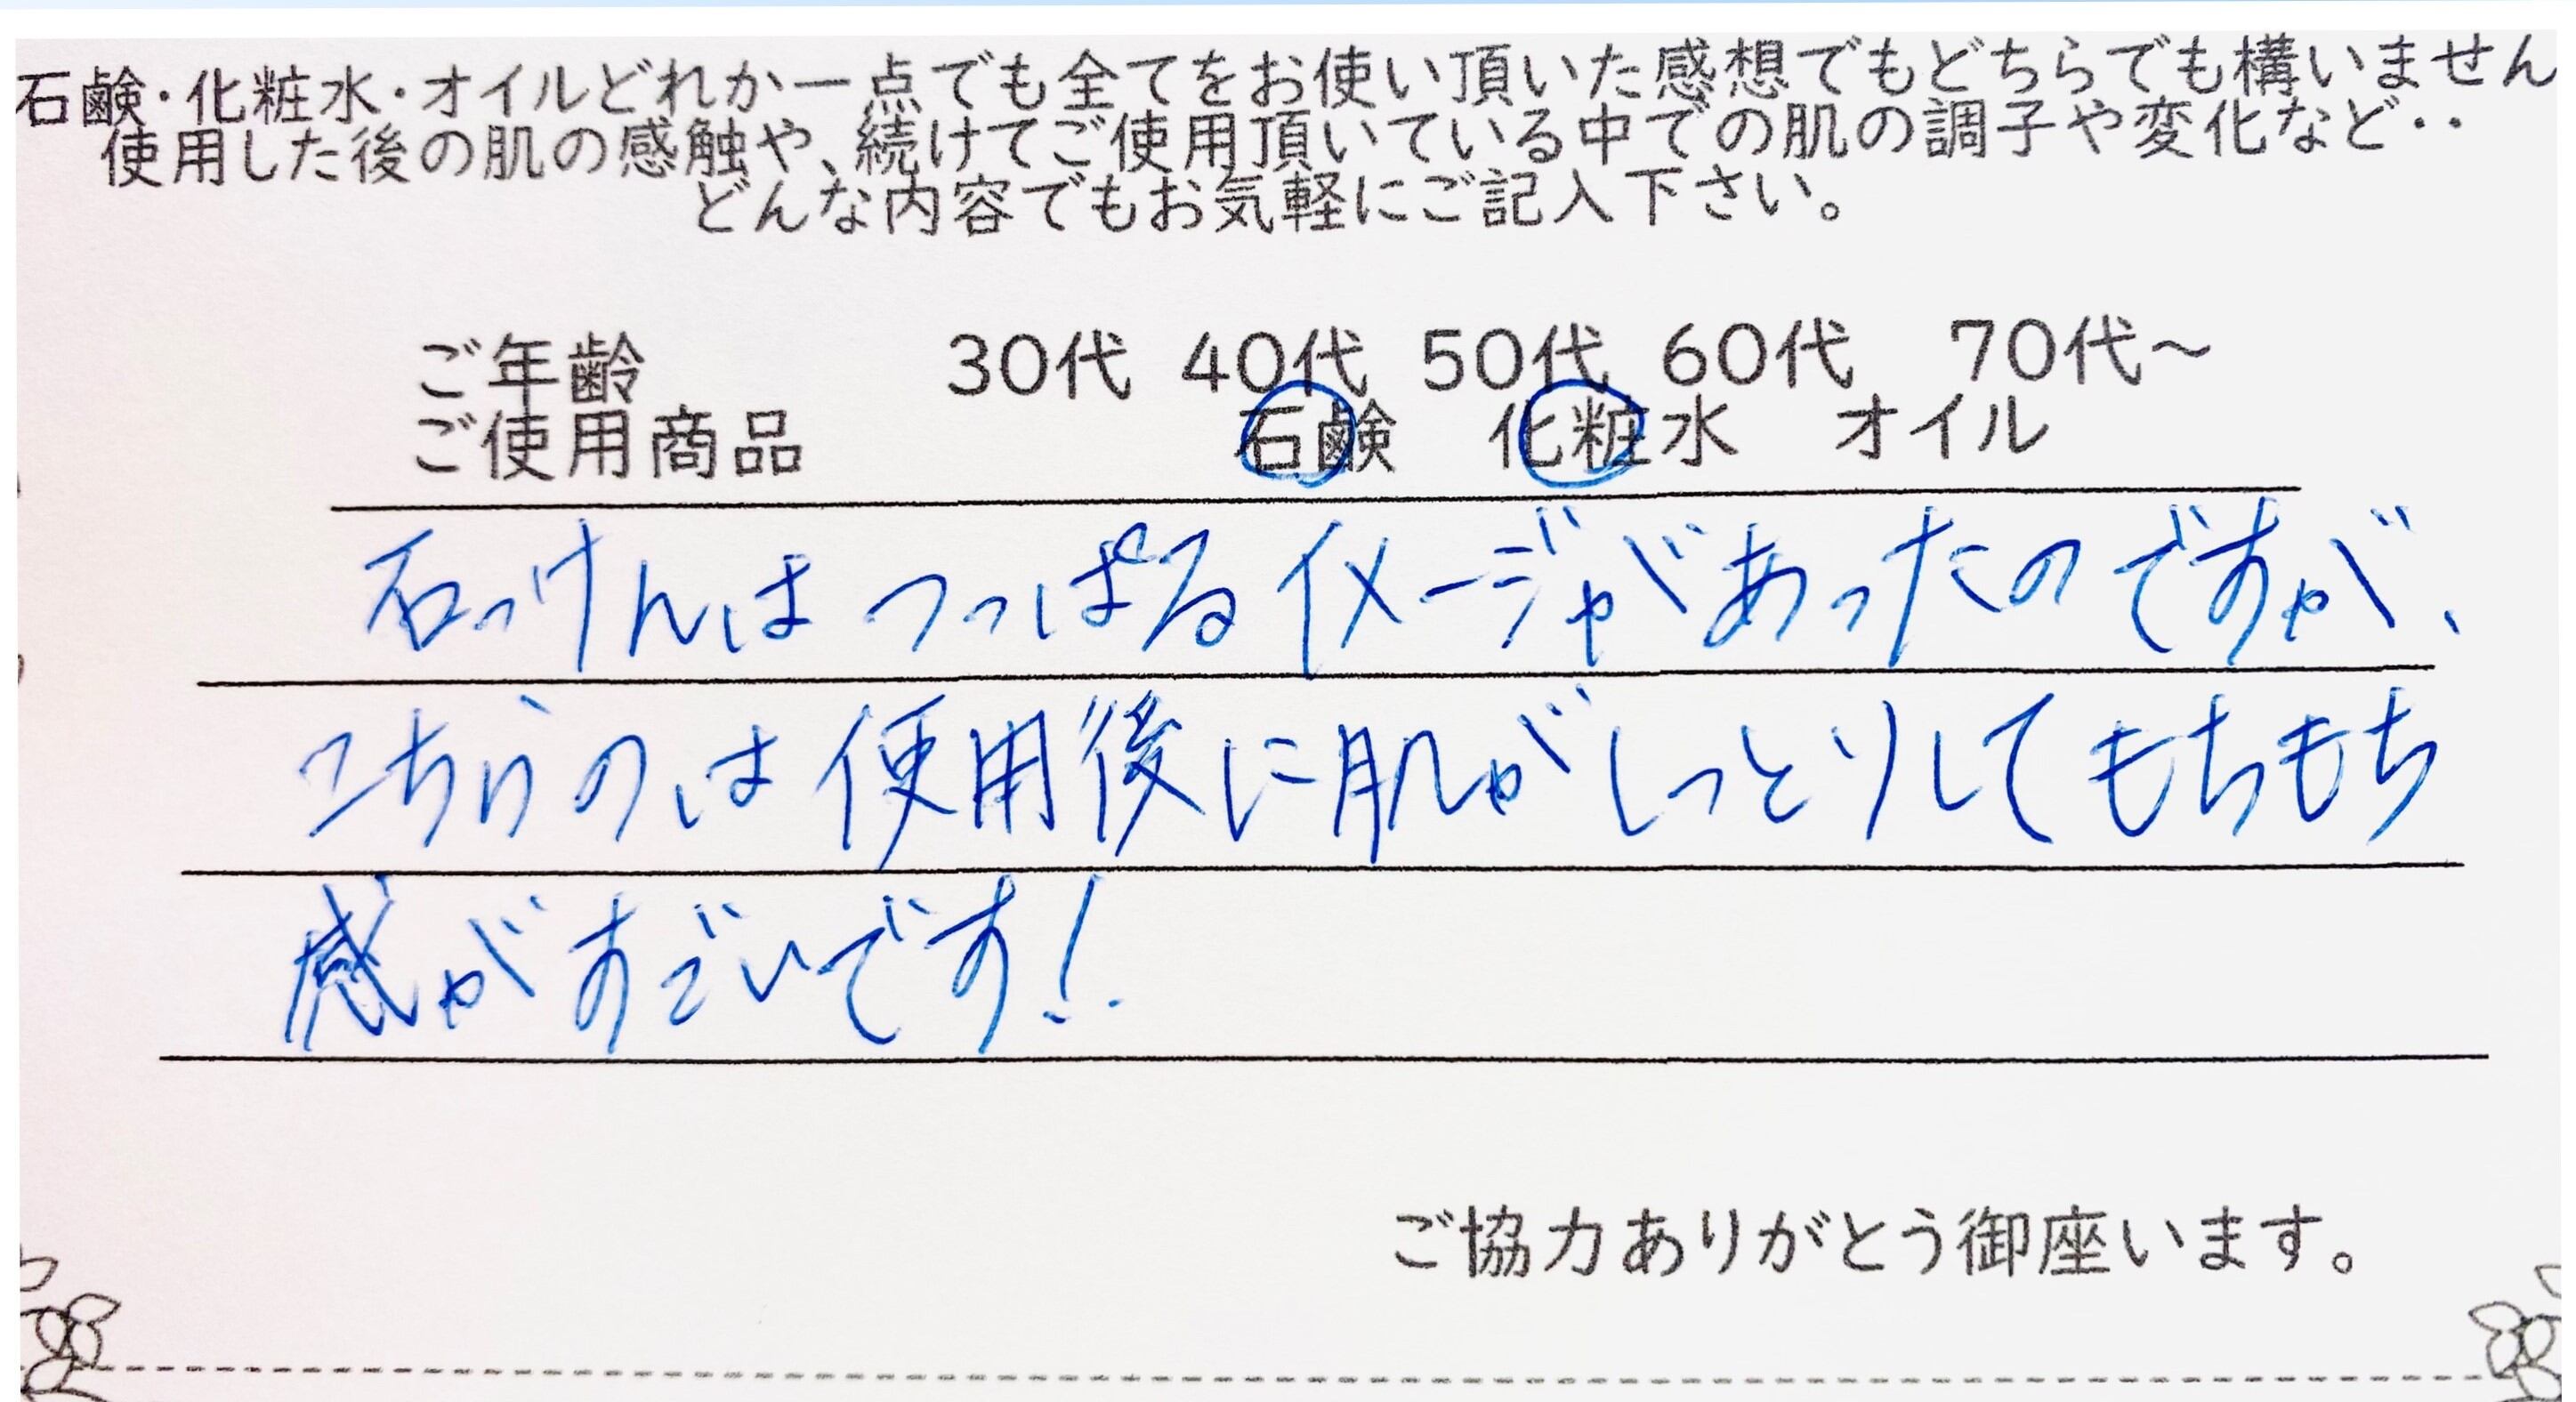 石鹸・化粧水・オイルどれか一点でも全てをお使い頂いた感想でもどちらでも構いません
使用した後の肌の感触や、続けてご使用頂いている中での肌の調子や変化など‥
どんな内容でもお気軽にご記入下さい。
ご年齢 30代 40代 50代 60代 70代～
ご使用商品 石鹸 化粧水 オイル
石っけんは つっぱるイメージがあったのですが、
こちらのは使用後に肌がしっとりしてもちもち
感がすごいです!
ご協力ありがとう御座います。